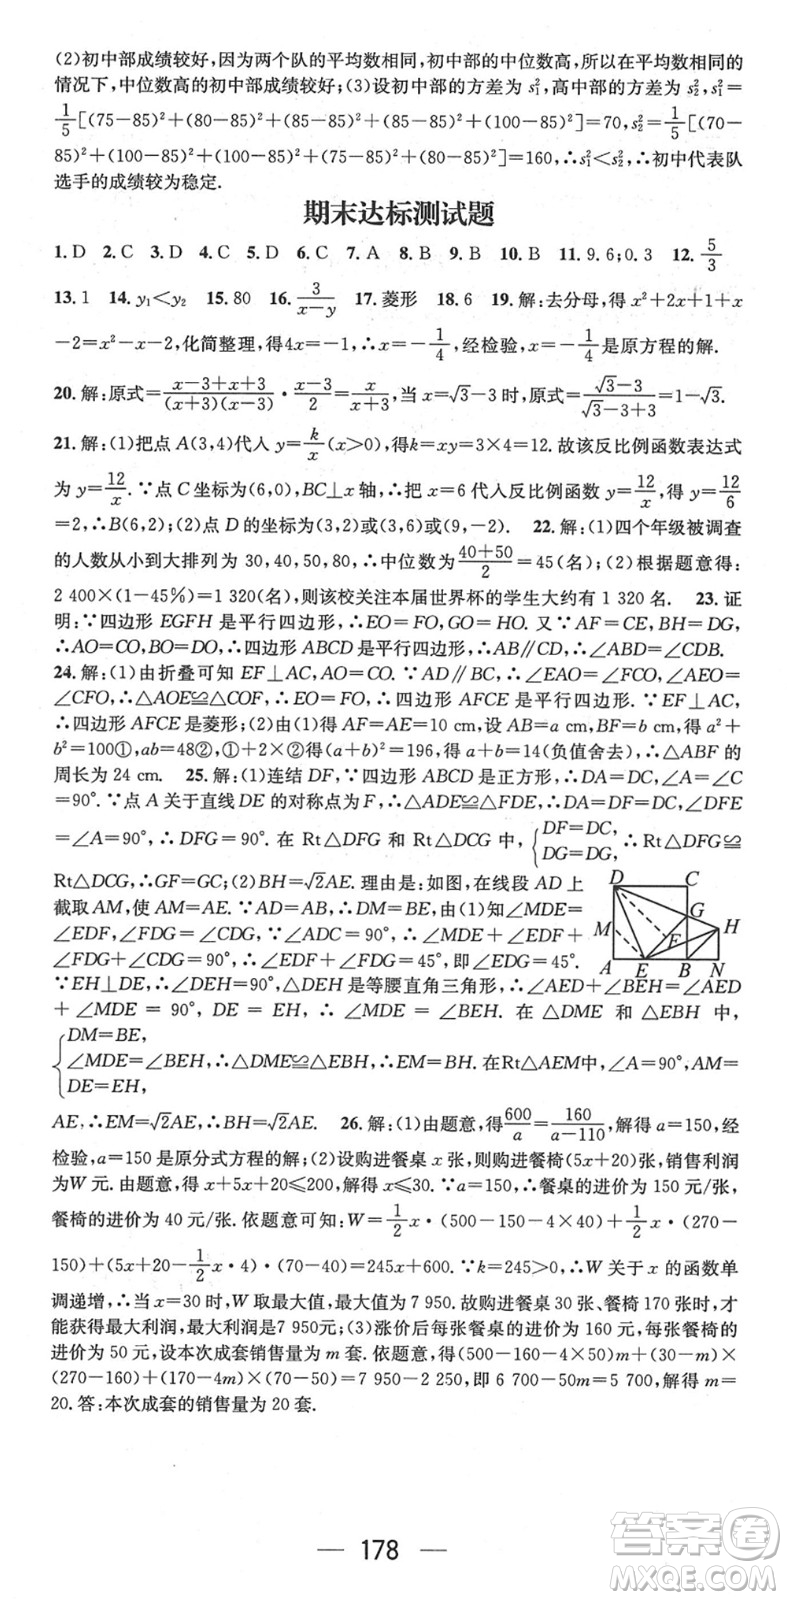 (2)初中部成绩较好,因为两个队的平均数相同,初中部的中位数高,所以在平均数相同的
情况下,中位数高的初中部成绩较好;(3)设初中部的方差为 s₁²,高中部的方差为 s₂²,s₁²=
1/5[(75-85)²+(80-85)²+(85-85)²+(85-85)²+(100-85)²]=70,s₂²=1/5[(70-
85)²+(100-85)²+(100-85)²+(75-85)²+(80-85)²]=160,∴s₁²<s₂²,∴初中代表队
选手的成绩较为稳定.
期末达标测试题
1. D 2. C 3. D 4. C 5. D 6. C 7. A 8. B 9. B 10. B 11. 9.6;0.3 12. 5/3
13. 1 14. y₁<y₂ 15. 80 16. 3/(x-y) 17. 菱形 18. 6 19. 解:去分母,得 x²+2x+1+x
-2=x²-x-2,化简整理,得4x=-1,∴x=-1/4,经检验,x=-1/4是原方程的解.
20. 解:原式=(x-3+x+3)/((x+3)(x-3))·(x-3)/2=x/(x+3),当 x=√3-3 时,原式=(√3-3)/(√3-3+3)=1-√3.
21. 解:(1)把点 A(3,4)代入 y=k/x(x>0),得k=xy=3×4=12. 故该反比例函数表达式
为 y=12/x. ∵点 C 坐标为(6,0),BC⊥x 轴,∴把 x=6 代入反比例函数 y=12/x,得 y=12/6
=2,∴B(6,2);(2)点 D 的坐标为(3,2)或(3,6)或(9,-2). 22. 解:(1)四个年级被调查
的人数从小到大排列为 30,40,50,80,∴中位数为(40+50)/2=45(名);(2)根据题意得:
2 400×(1-45%)=1 320(名),则该校关注本届世界杯的学生大约有 1 320 名. 23. 证
明:∵四边形 EGFH 是平行四边形,∴EO=FO,GO=HO. 又∵AF=CE,BH=DG,
∴AO=CO,BO=DO,∴四边形 ABCD 是平行四边形,∴AB∥CD,∴∠ABD=∠CDB.
24. 解:(1)由折叠可知 EF⊥AC,AO=CO,∵AD∥BC,∴∠EAO=∠FCO,∠AEO=
∠CFO,∴△AOE≌△COF,∴EO=FO,∴四边形 AFCE 是平行四边形. ∵EF⊥AC,
∴四边形 AFCE 是菱形;(2)由(1)得 AF=AE=10 cm,设 AB=a cm,BF=b cm,得 a²+
b²=100①,ab=48②,①+2×②得(a+b)²=196,得 a+b=14(负值舍去),∴△ABF 的
周长为 24 cm. 25. 解:(1)连结 DF,∵四边形 ABCD 是正方形,∴DA=DC,∠A=∠C
=90°. ∵点 A 关于直线 DE 的对称点为 F,∴△ADE≌△FDE,∴DA=DF=DC,∠DFE
=∠A=90°,∴∠DFG=90°. 在 Rt△DFG 和 Rt△DCG 中,{DF=DC, DG=DG, ∴Rt△DFG≌
Rt△DCG,∴GF=GC;(2)BH=√2AE. 理由是:如图,在线段 AD 上
截取 AM,使 AM=AE. ∵AD=AB,∴DM=BE,由(1)知∠MDE=
∠EDF,∠FDG=∠CDG. ∵∠ADC=90°,∴∠MDE+∠EDF+
∠FDG+∠CDG=90°,∴∠EDF+∠FDG=45°,即∠EDG=45°.
∵EH⊥DE,∴∠DEH=90°,△DEH是等腰直角三角形,∴∠AED+∠BEH=∠AED+
∠MDE = 90°, DE = EH, ∴∠MDE = ∠BEH. 在 △DME 和 △EBH 中,
D C G H M F A E B N
{DM=BE,
∠MDE=∠BEH,∴△DME≌△EBH,∴EM=BH. 在Rt△AEM中,∠A=90°,AM=
DE=EH,
AE,∴EM=√2AE,∴BH=√2AE. 26. 解:(1)由题意,得600/a=160/(a-110),解得 a=150,经
检验,a=150 是原分式方程的解;(2)设购进餐桌 x 张,则购进餐椅(5x+20)张,销售利润
为W 元. 由题意,得 x+5x+20≤200,解得 x≤30. ∵a=150,∴餐桌的进价为 150 元/张,
餐椅的进价为 40 元/张. 依题意可知:W=1/2x·(500-150-4×40)+1/2x·(270-
150)+(5x+20-1/2x·4)·(70-40)=245x+600. ∵k=245>0,∴W 关于 x 的函数单
调递增,∴当 x=30 时,W 取最大值,最大值为 7 950. 故购进餐桌 30 张、餐椅 170 张时,才
能获得最大利润,最大利润是 7 950元;(3)涨价后每张餐桌的进价为 160 元,每张餐椅的
进价为 50 元,设本次成套销售量为 m 套. 依题意,得(500-160-4×50)m+(30-m)
×(270-160)+(170-4m)×(70-50)=7 950-2 250,即 6 700-50m=5 700,解得 m=
20. 答:本次成套的销售量为 20 套.
178
答案圈
MXQE.COM